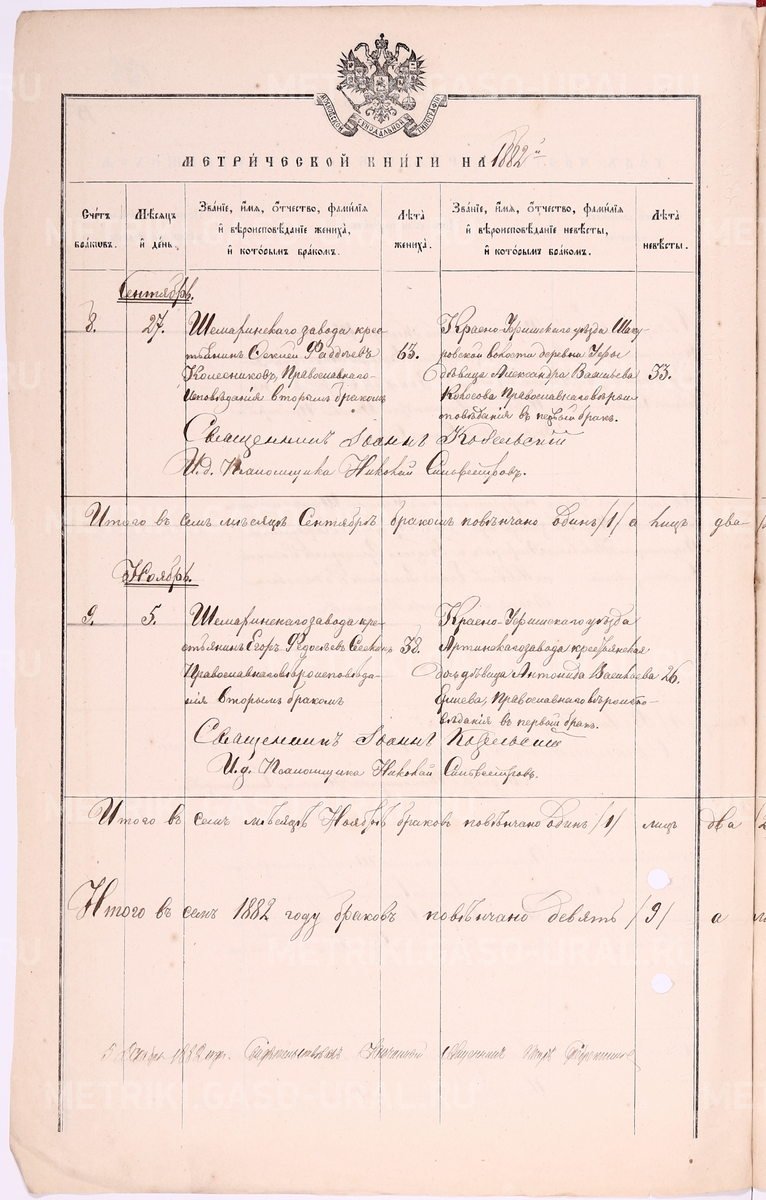 МОСКОВСКОЙ СУНОДАЛЬНОЙ ТИПОГРАФІИ
МЕТРИ́ЧЕСКОЙ КНИ́ГИ НА 1882 й
Сче́тъ бра́кωвъ.
Мѣ́сяцъ и҆ де́нь.
Зва́ніе, и҆́мя, ѻ҆́тчество, фами́лія и҆ вѣроисповѣ́даніе жениха̀, и҆ кото́рымъ бра́комъ.
Лѣ́та жениха̀.
Зва́ніе, и҆́мя, ѻ҆́тчество, фами́лія и҆ вѣроисповѣ́даніе невѣ́сты, и҆ кото́рымъ бра́комъ.
Лѣ́та невѣ́сты.
Сентябрь.
8.
27.
Шемаринскаго завода крес-
тьянинъ Фаддѣевъ
Колесниковъ, Православнаго
исповѣданія вторымъ бракомъ
63.
Красно-Уфимскаго уѣзда
волости деревни
дѣвица Александра Васильева
Православнаго вѣроис
повѣданія въ первый бракъ.
33.
Священникъ Іоаннъ
И. д. Псаломщика Николай Сильвестровъ.
Итого въ семъ мѣсяцѣ Сентябрѣ бракомъ повѣнчано Одинъ /1/ а лицъ два
Ноябрь.
9.
5.
Шемаринскаго завода кре-
стьянинъ Егоръ Федосѣевъ
Православнаго вѣроисповѣда-
нія вторымъ бракомъ
38.
Красно-Уфимскаго уѣзда
Артинскаго завода крестьянская
дѣвица Антонида Васильева
Православнаго вѣроиспо-
вѣданія въ первый бракъ.
26.
Священникъ Іоаннъ
И. д. Псаломщика Николай Сильвестровъ.
Итого въ семъ мѣсяцѣ Ноябрѣ браковъ повѣнчано Одинъ /1/ лицъ два
Итого въ семъ 1882 году браковъ повѣнчано девять /9/ а
1882 Священникъ
METRIKI.GASO-URAL.RU